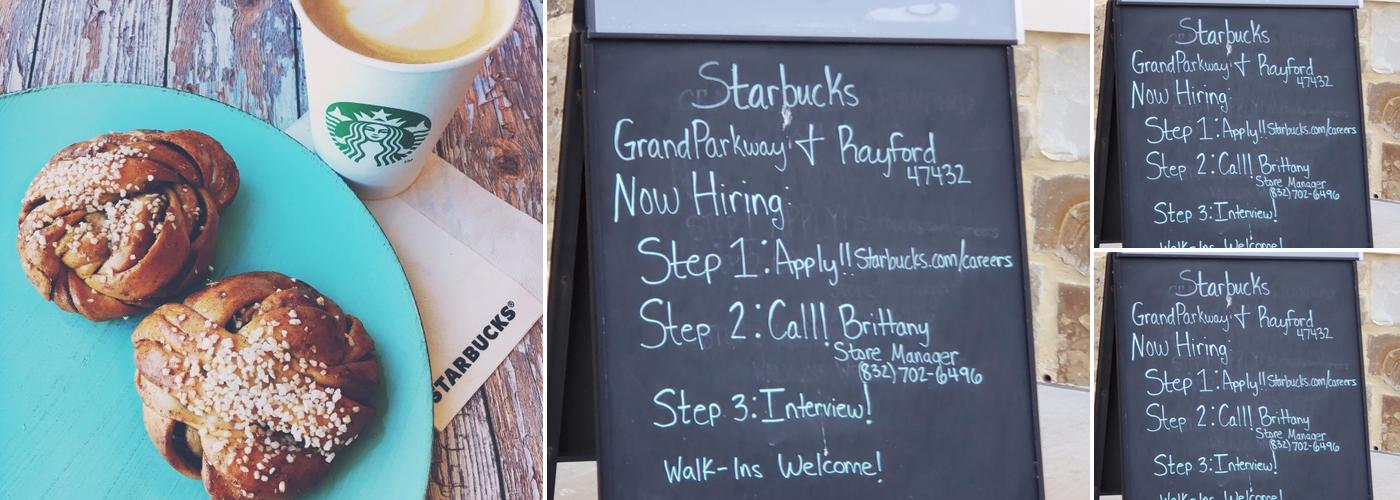 STARBUCKS®
Starbucks
GrandParkway + Rayford
47432
Now Hiring:
Step 1: Apply!! Starbucks.com/careers
Step 2: Call! Brittany
Store Manager
(832) 702-6496
Step 3: Interview!
Walk-Ins Welcome!
Starbucks
GrandParkway + Rayford
47432
Now Hiring:
Step 1: Apply!! Starbucks.com/careers
Step 2: Call! Brittany
Store Manager
(832) 702-6496
Step 3: Interview!
Walk-Ins Welcome!
Starbucks
GrandParkway + Rayford
47432
Now Hiring:
Step 1: Apply!! Starbucks.com/careers
Step 2: Call! Brittany
Store Manager
(832) 702-6496
Step 3: Interview!